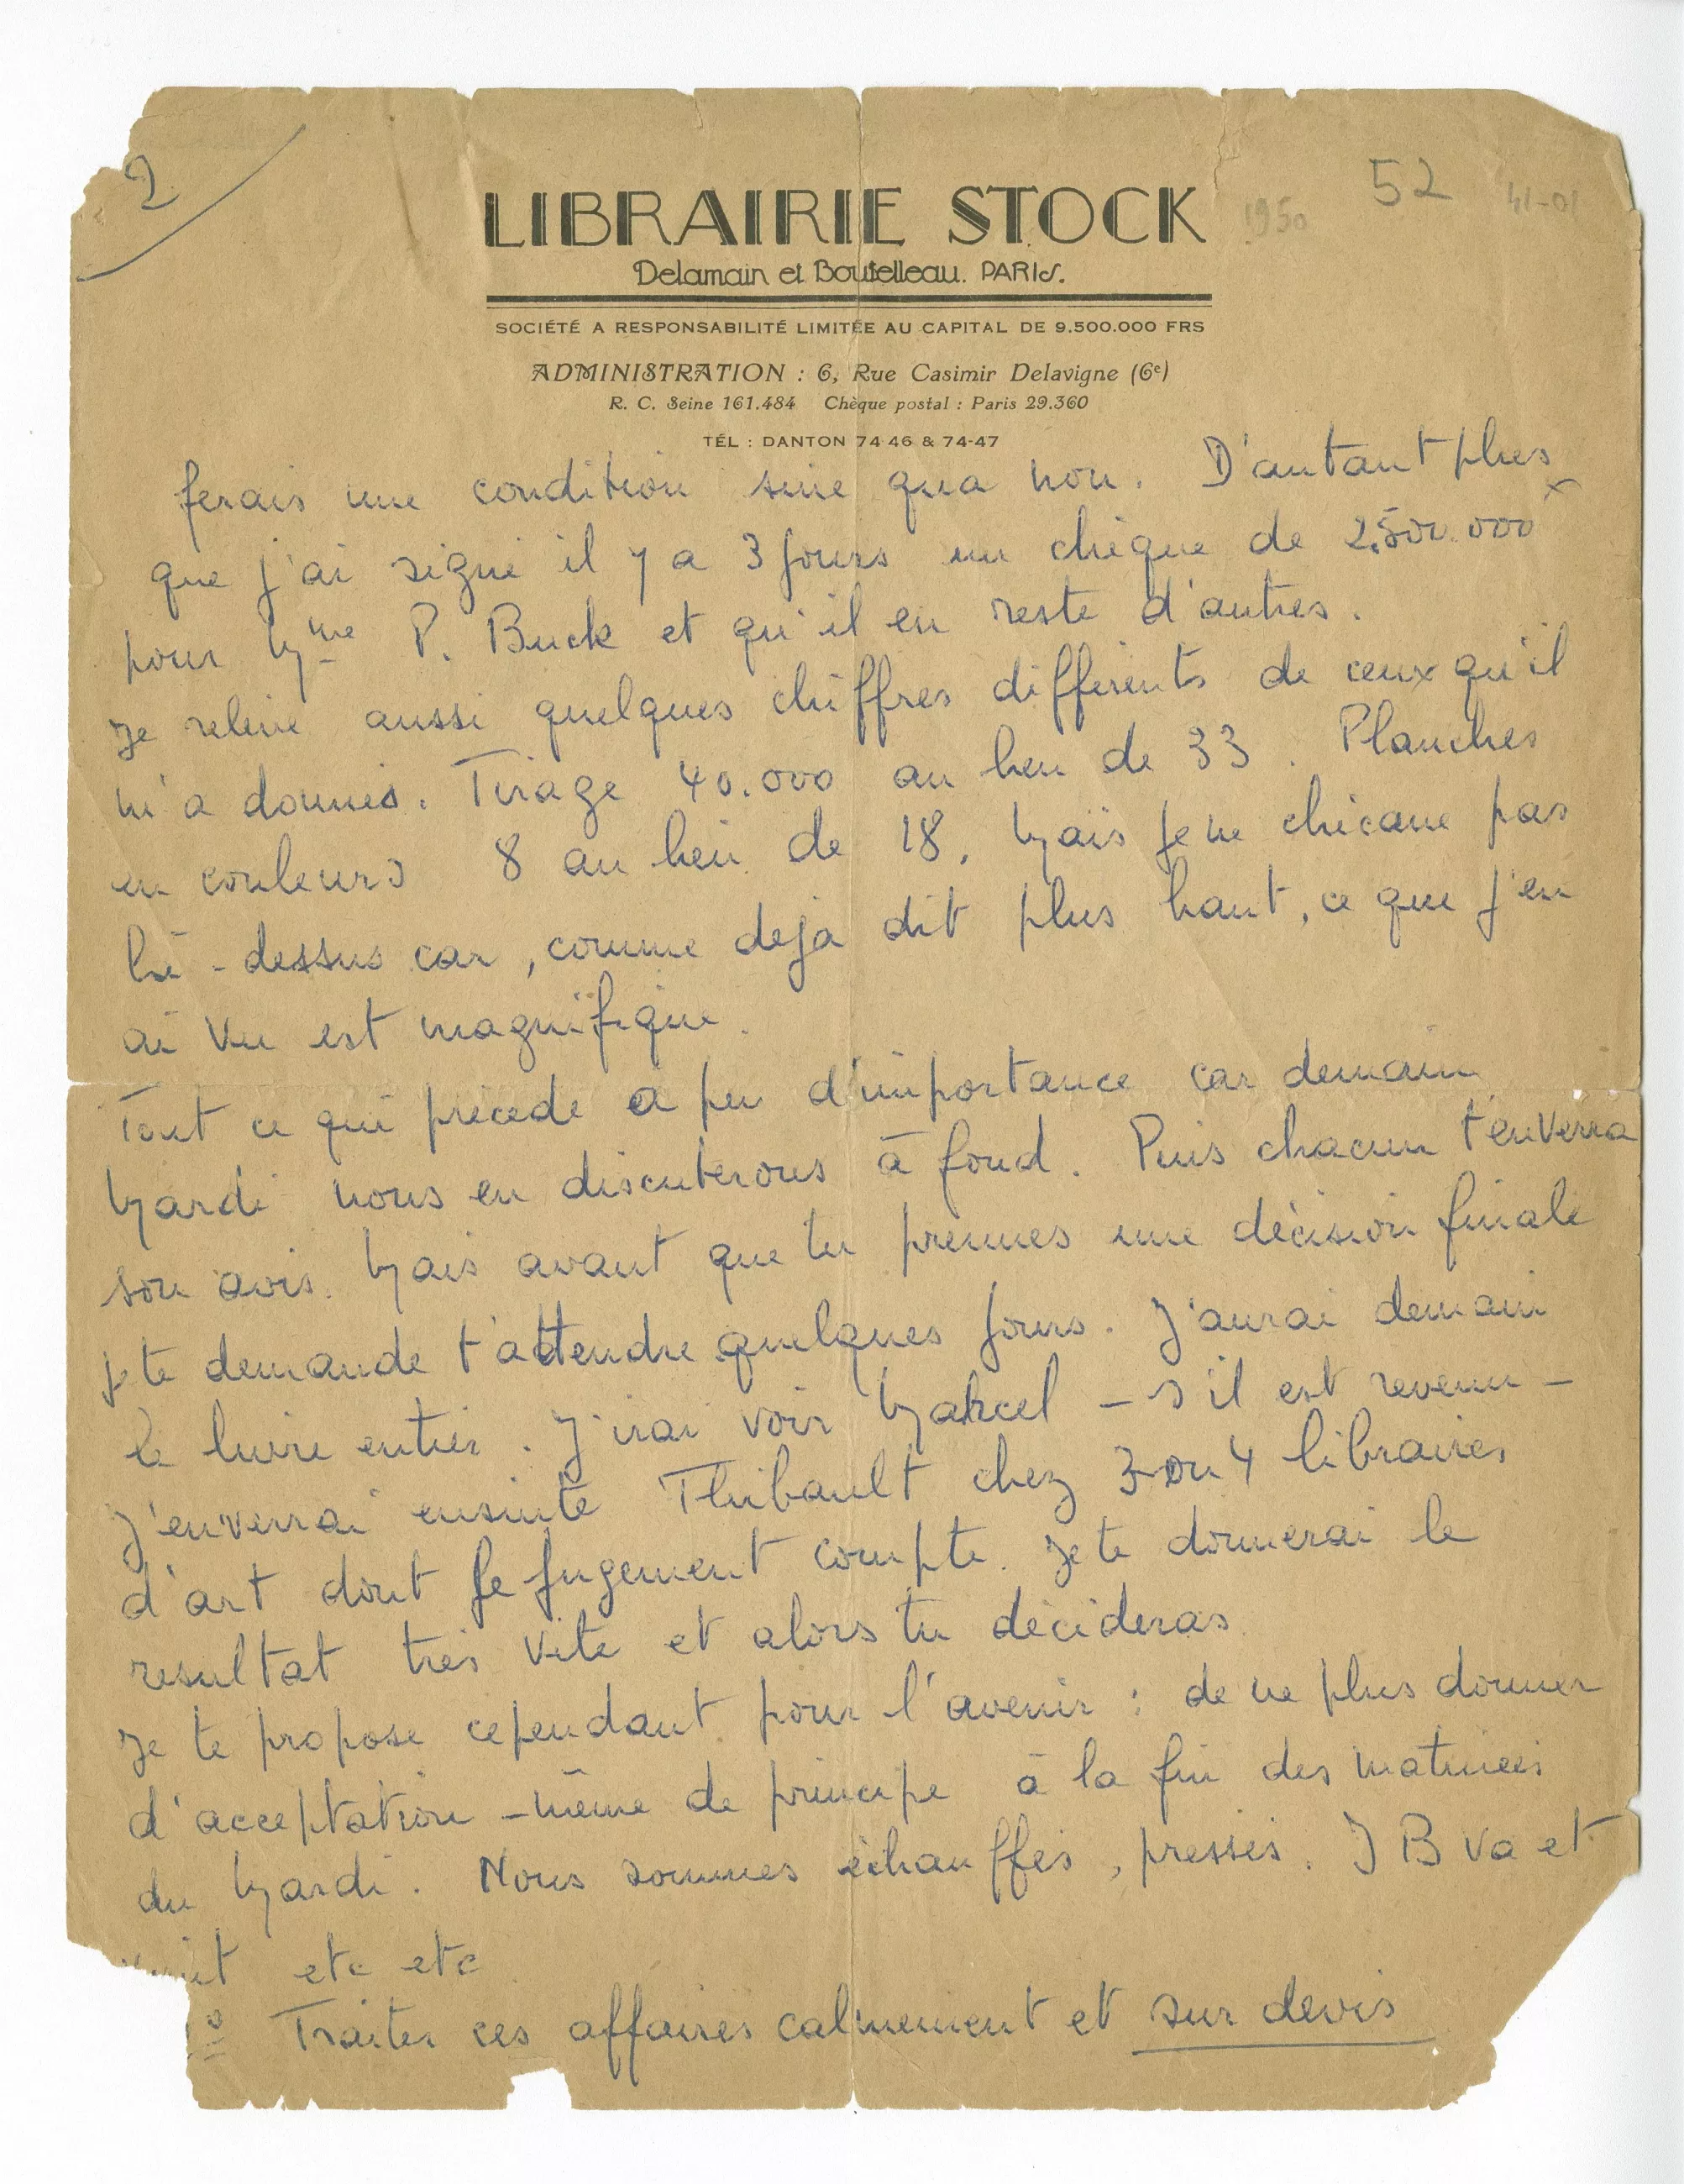 2
52
1950
41-01
LIBRAIRIE STOCK
Delamain et Boutelleau. PARIS.
SOCIÉTÉ A RESPONSABILITÉ LIMITÉE AU CAPITAL DE 9.500.000 FRS
ADMINISTRATION : 6, Rue Casimir Delavigne (6e)
R. C. Seine 161.484 Chèque postal : Paris 29.360
TÉL : DANTON 74 46 & 74-47
ferais une condition sine qua non. D'autant plus
que j'ai signé il y a 3 jours un chèque de 2.500.000 x
pour Mme P. Buck et qu'il en reste d'autres.
Je relève aussi quelques chiffres différents de ceux qu'il
m'a donnés. Tirage 40.000 au lieu de 33. Planches
en couleurs 8 au lieu de 18. Mais je ne chicane pas
là-dessus car, comme déjà dit plus haut, ce que j'en
ai vu est magnifique.
Tout ce qui précède a peu d'importance car demain
Mardi nous en discuterons à fond. Puis chacun t'enverra
son avis. Mais avant que tu prennes une décision finale
je te demande t'attendre quelques jours. J'aurai demain
le livre entier. J'irai voir Marcel - s'il est revenu -
J'enverrai ensuite Thibault chez 3 ou 4 libraires
d'art dont le jugement compte. Je te donnerai le
resultat très vite et alors tu décideras
Je te propose cependant pour l'avenir : de ne plus donner
d'acceptation - même de principe à la fin des matinées
du Mardi. Nous sommes échauffés, pressés. J B va et
vient etc etc
Traiter ces affaires calmement et sur devis